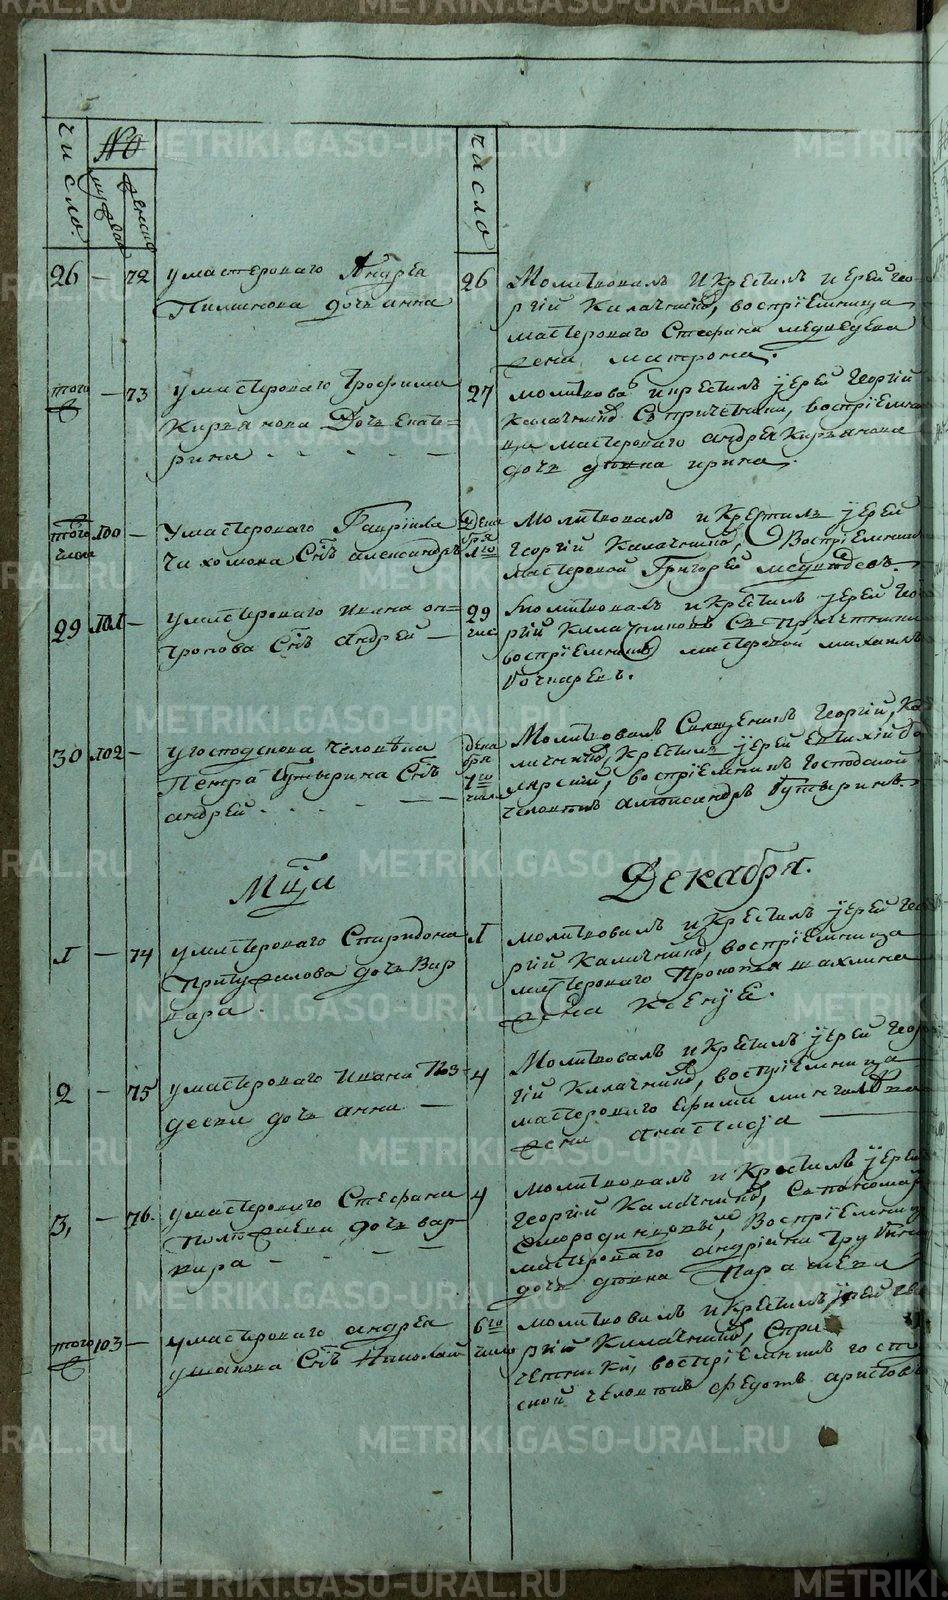 число.
№
мужеска
женска
число
26 – 72 у мастероваго Андрея
Пиминова дочь анна
26 Молитвовалъ И Крестилъ иерей гео
ргій Калачниковъ, воспріемница
мастероваго Стефана медведева
жена матрона.
того ж – 73 у мастероваго трофима
Кирьянова Дочь Екате=
рина
27 молитвова и крестилъ іерей Георгій
Калачниковъ Съ причетники, воспріемни
ца мастероваго андрея Кирьянова
дочь девка ирина.
того числа 100 – У мастероваго Гавріила
Чихомова Сынъ александръ
Декабря 1го
Молитвовалъ и Крестилъ іерей
Георгій Калачниковъ, Воспріемникъ
мастеровой Григорей медведевъ.
29 101 – у мастероваго ивана
Сынъ Андрей
29 числ
молитвовалъ и крестилъ іерей Гео
ргій Калачниковъ Съ Причетники
воспріемникъ мастеровой михаилъ
бочкаревъ.
30 102 – у господскова человека
Петра Бутырина Сынъ
андрей
декабря 1го числа
Молитвовалъ Священникъ Георгій Ка
лачниковъ, Крестилъ іерей Евтихій бо
ярский, воспріемникъ Господской
человекъ александръ бутыринъ.
Мца
Декабря.
1 – 74 у мастероваго Спиридона
дочь Вар
вара.
1 молитвовалъ и крестилъ іерей Гео
ргій Калачниковъ, воспріемница
мастероваго Прокопья шахмина
жена Ксенія.
2 – 75 у мастероваго Ивана
дочь анна
4 Молитвовалъ и Крестилъ іерей Геор
гій Калачниковъ, воспріемница
мастероваго Ефима
жена анастасія
3, – 76. у мастероваго Стефана
дочь вар
вара
4 Молитвовалъ и Крестилъ іерей
Георгій Калачниковъ, Съ пономар
Смородинцовымъ, Воспріемница
мастероваго андріана трубина
дочь девка Параскева
того ж 103 – у мастероваго андрея
ушакова Сынъ Николай
6го числа
молитвовалъ и крестилъ, іерей гео
ргій Калачниковъ, С при
четники, воспріемникъ госпо
ской человекъ федотъ аристовъ
METRIKI.GASO-URAL.RU